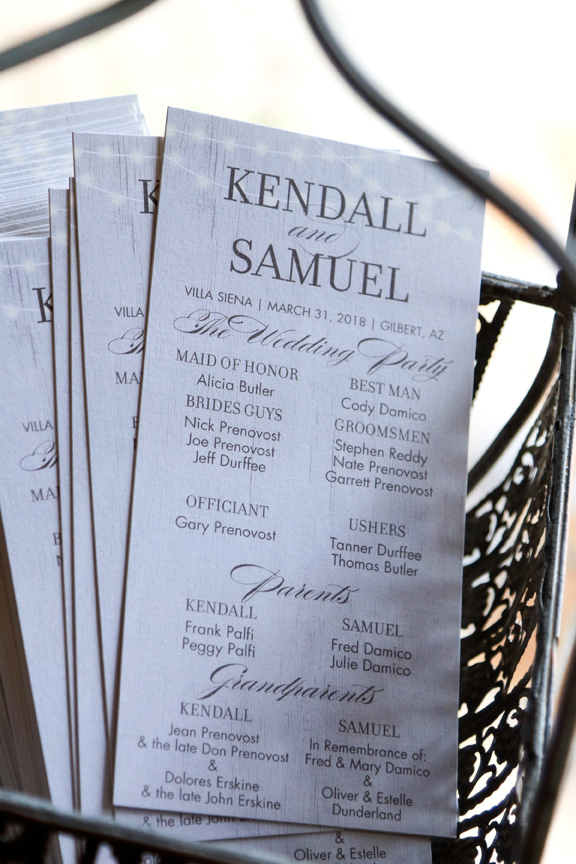 KENDALL
and
SAMUEL
VILLA SIENA | MARCH 31, 2018 | GILBERT, AZ
The Wedding Party
MAID OF HONOR
Alicia Butler
BRIDES GUYS
Nick Prenovost
Joe Prenovost
Jeff Durffee
BEST MAN
Cody Damico
GROOMSMEN
Stephen Reddy
Nate Prenovost
Garrett Prenovost
OFFICIANT
Gary Prenovost
USHERS
Tanner Durffee
Thomas Butler
Parents
KENDALL
Frank Palfi
Peggy Palfi
SAMUEL
Fred Damico
Julie Damico
Grandparents
KENDALL
Jean Prenovost
& the late Don Prenovost
&
Dolores Erskine
& the late John Erskine
SAMUEL
In Remembrance of:
Fred & Mary Damico
&
Oliver & Estelle
Dunderland
K
VILLA
MA
K
VILLA
MA
& the late John
&
Oliver & Estelle